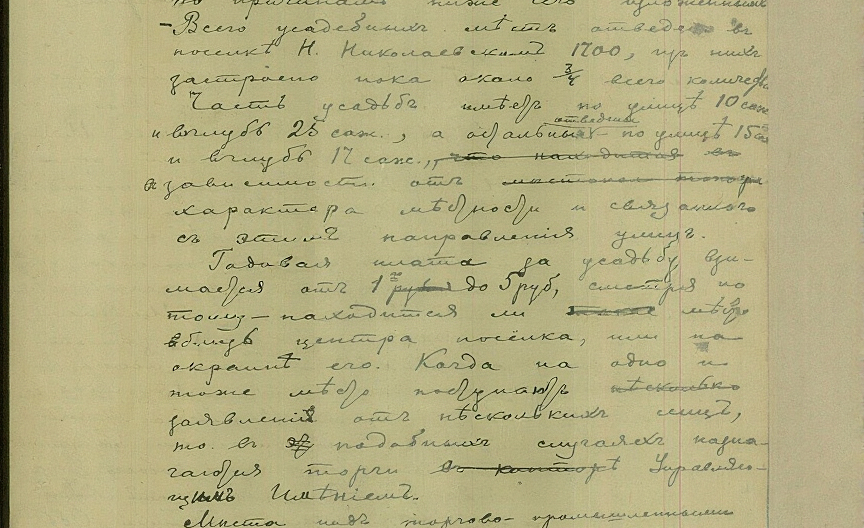 по причинамъ ниже его изложеннымъ
— Всего усадебныхъ мѣстъ отведено въ
поселкѣ Н. Николаевскомъ 1700, изъ нихъ
застроено пока около 3/4 всего количества
Часть усадьбъ имѣетъ по улицѣ 10 саж.
и вглубь 25 саж., а остальныя отведены по улицѣ 15 саж
и вглубь 17 саж., что находится въ
въ зависимости отъ
характера мѣстности и связаннаго
съ этимъ направленія улицъ.
Годовая плата за усадьбу взи-
мается отъ 1 го до 5 руб, смотря по
тому — находится ли мѣсто
вблизь центра посёлка, или на
окраинѣ его. Когда на одно и
тоже мѣсто поступаютъ нѣсколько
заявленій отъ нѣсколькихъ лицъ,
то въ подобныхъ случаяхъ назна-
чаются торги въ конторѣ Управляю-
щимъ Имѣніемъ.
Мѣста подъ торгово-промышленными